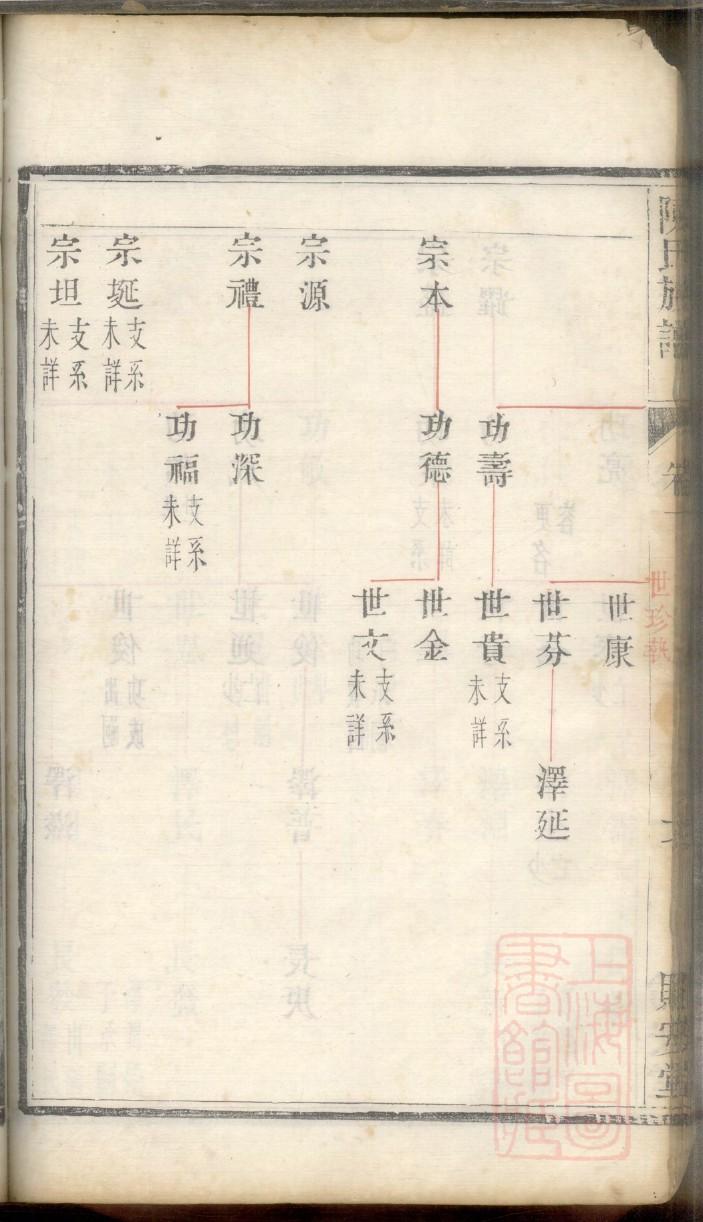 陳氏族譜
卷一
世珍執
世康
世芬
澤延
功壽
世貴
支系
未詳
宗本
功德
世金
世文
支系
未詳
宗源
宗禮
功深
功福
支系
未詳
宗埏
支系
未詳
宗坦
支系
未詳
上海圖
書館藏